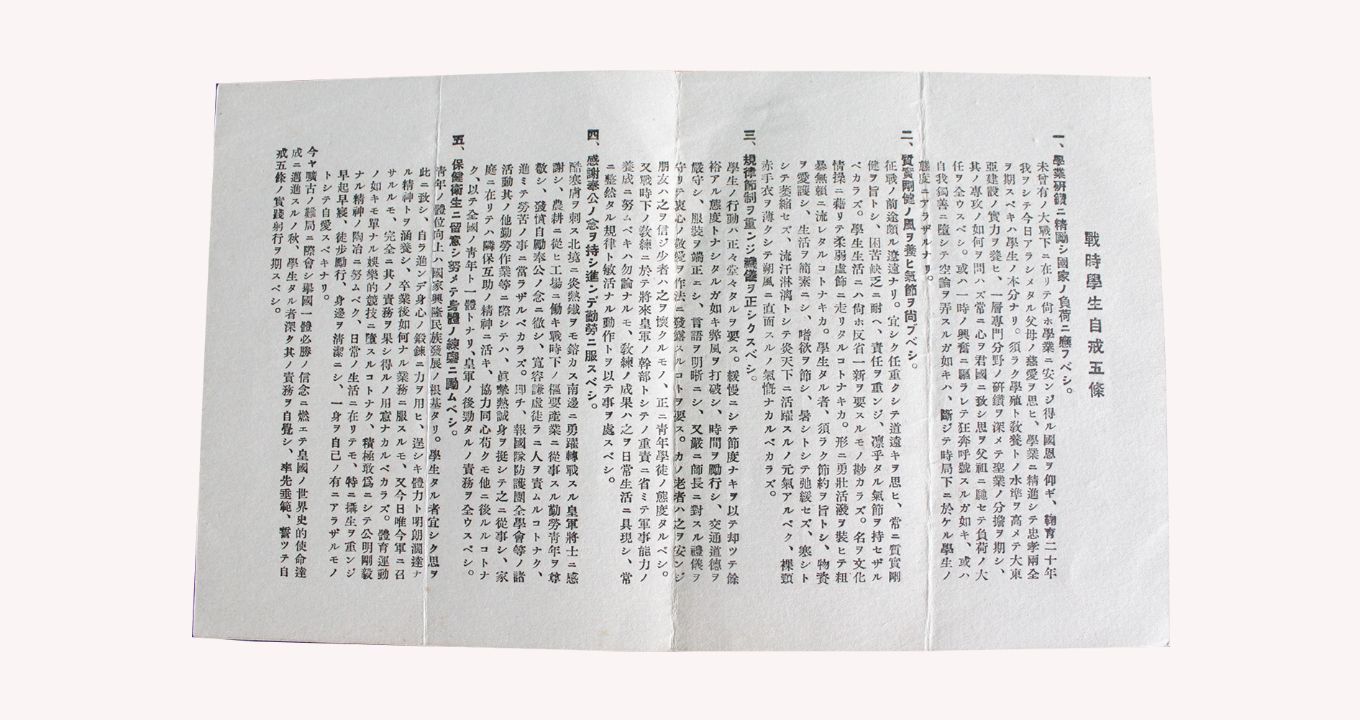 戰時學生自戒五條
一、學業硏鑽ニ精勵シ國家ノ負荷ニ應フベシ。
未曾有ノ大戰下ニ在リテ尙ホ學業ニ安ンジ得ル國恩ヲ仰ギ、鞠育二十年
我ヲシテ今日アラシメタル父母ノ慈愛ヲ思ヒ、學業ニ精進シテ忠孝兩全
ヲ期スベキハ學生ノ本分ナリ。須ラク學殖ト敎養トノ水準ヲ高メテ大東
亞建設ノ實力ヲ養ヒ、一層專門分野ノ硏鑽ヲ深メテ聖業ノ分擔ヲ期シ、
其ノ專攻ノ如何ヲ問ハズ常ニ心ヲ君國ニ致シ思ヲ父祖ニ馳セテ負荷ノ大
任ヲ全ウスベシ。或ハ一時ノ興奮ニ驅ラレテ狂奔呼號スルガ如キ、或ハ
自我獨善ニ墮シテ空論ヲ弄スルガ如キハ、斷ジテ時局下ニ於ケル學生ノ
態度ニアラザルナリ。
二、質實剛健ノ風ヲ養ヒ氣節ヲ尙ブベシ。
征戰ノ前途頗ル遼遠ナリ。宜シク任重クシテ道遠キヲ思ヒ、常ニ質實剛
健ヲ旨トシ、困苦缺乏ニ耐ヘ、責任ヲ重ンジ、凛乎タル氣節ヲ持セザル
ベカラズ。學生生活ニハ尙ホ反省一新ヲ要スルモノ尠カラズ。名ヲ文化
情操ニ藉リテ柔弱虛飾ニ走リタルコトナキカ。形ニ勇壯活潑ヲ裝ヒテ粗
暴無賴ニ流レタルコトナキカ。學生タル者、須ラク節約ヲ旨トシ、物資
ヲ愛護シ、生活ヲ簡素ニシ、嗜欲ヲ節シ、暑シトシテ弛緩セズ、寒シト
シテ萎縮セズ、流汗淋漓トシテ炎天下ニ活躍スルノ元氣アルベク、裸頸
赤手衣ヲ薄クシテ朔風ニ直面スルノ氣慨ナカルベカラズ。
三、規律節制ヲ重ンジ禮儀ヲ正シクスベシ。
學生ノ行動ハ正々堂々タルヲ要ス。緩慢ニシテ節度ナキヲ以テ却ツテ餘
裕アル態度トナシタルガ如キ弊風ヲ打破シ、時間ヲ勵行シ、交通道德ヲ
嚴守シ、服裝ヲ端正ニシ、言語ヲ明晰ニシ、又嚴ニ師長ニ對スル禮儀ヲ
守リテ衷心ノ敬愛ヲ作法ニ發露スルコトヲ要ス。カノ老者ハ之ヲ安ンジ
朋友ハ之ヲ信ジ少者ハ之ヲ懷クルモノ、正ニ靑年學徒ノ態度タルベシ。
又戰時下ノ敎練ニ於テ將來皇軍ノ幹部トシテノ重責ニ省ミテ軍事能力ノ
養成ニ努ムベキハ勿論ナルモ、敎練ノ成果ハ之ヲ日常生活ニ具現シ、常
ニ整然タル規律ト敏活ナル動作トヲ以テ事ヲ處スベシ。
四、感謝奉公ノ念ヲ持シ進ンデ勤勞ニ服スベシ。
酷寒膚ヲ刺ス北境ニ炎熱鐵ヲモ鎔カス南邊ニ勇躍轉戰スル皇軍將士ニ感
謝シ、農耕ニ從ヒ工場ニ働キ戰時下ノ樞要產業ニ從事スル勤勞靑年ヲ尊
敬シ、發憤自勵奉公ノ念ニ徹シ、寬容謙虛徒ラニ人ヲ責ムルコトナク、
進ミテ勞苦ノ事ニ當ラザルベカラズ。卽チ、報國隊防護團全學會等ノ諸
活動其ノ他勤勞作業等ニ際シテハ、眞摯熱誠身ヲ挺シテ之ニ從事シ、家
庭ニ在リテハ隣保互助ノ精神ニ活キ、協力同心苟クモ他ニ後ルルコトナ
ク、以テ全國ノ靑年ト一體トナリ、皇軍ノ後勁タルノ責務ヲ全ウスベシ。
五、保健衞生ニ留意シ努メテ身體ノ鍊磨ニ勵ムベシ。
靑年ノ體位向上ハ國家興隆民族發展ノ根基タリ。學生タル者宜シク思ヲ
此ニ致シ、自ラ進ンデ身心ノ鍛鍊ニ力ヲ用ヒ、逞シキ體力ト明朗濶達ナ
ル精神トヲ涵養シ、卒業後如何ナル業務ニ服スルモ、又今日唯今軍ニ召
サルルモ、完全ニ其ノ責務ヲ果シ得ルノ用意ナカルベカラズ。體育運動
ノ如キモ單ナル娛樂的競技ニ墮スルコトナク、積極敢爲ニシテ公明剛毅
ナル精神ノ陶冶ニ努ムベク、日常ノ生活ニ在リテモ、特ニ攝生ヲ重ンジ
早起早寢、徒步勵行、身邊ヲ淸潔ニシ、一身ヲ自己ノ有ニアラザルモノ
トシテ自愛スベキナリ。
今ヤ曠古ノ難局ニ際會シ擧國一體必勝ノ信念ニ燃エテ皇國ノ世界史的使命達
成ニ邁進スルノ秋、學生タル者深ク其ノ責務ヲ自覺シ、率先垂範、誓ツテ自
戒五條ノ實踐躬行ヲ期スベシ。